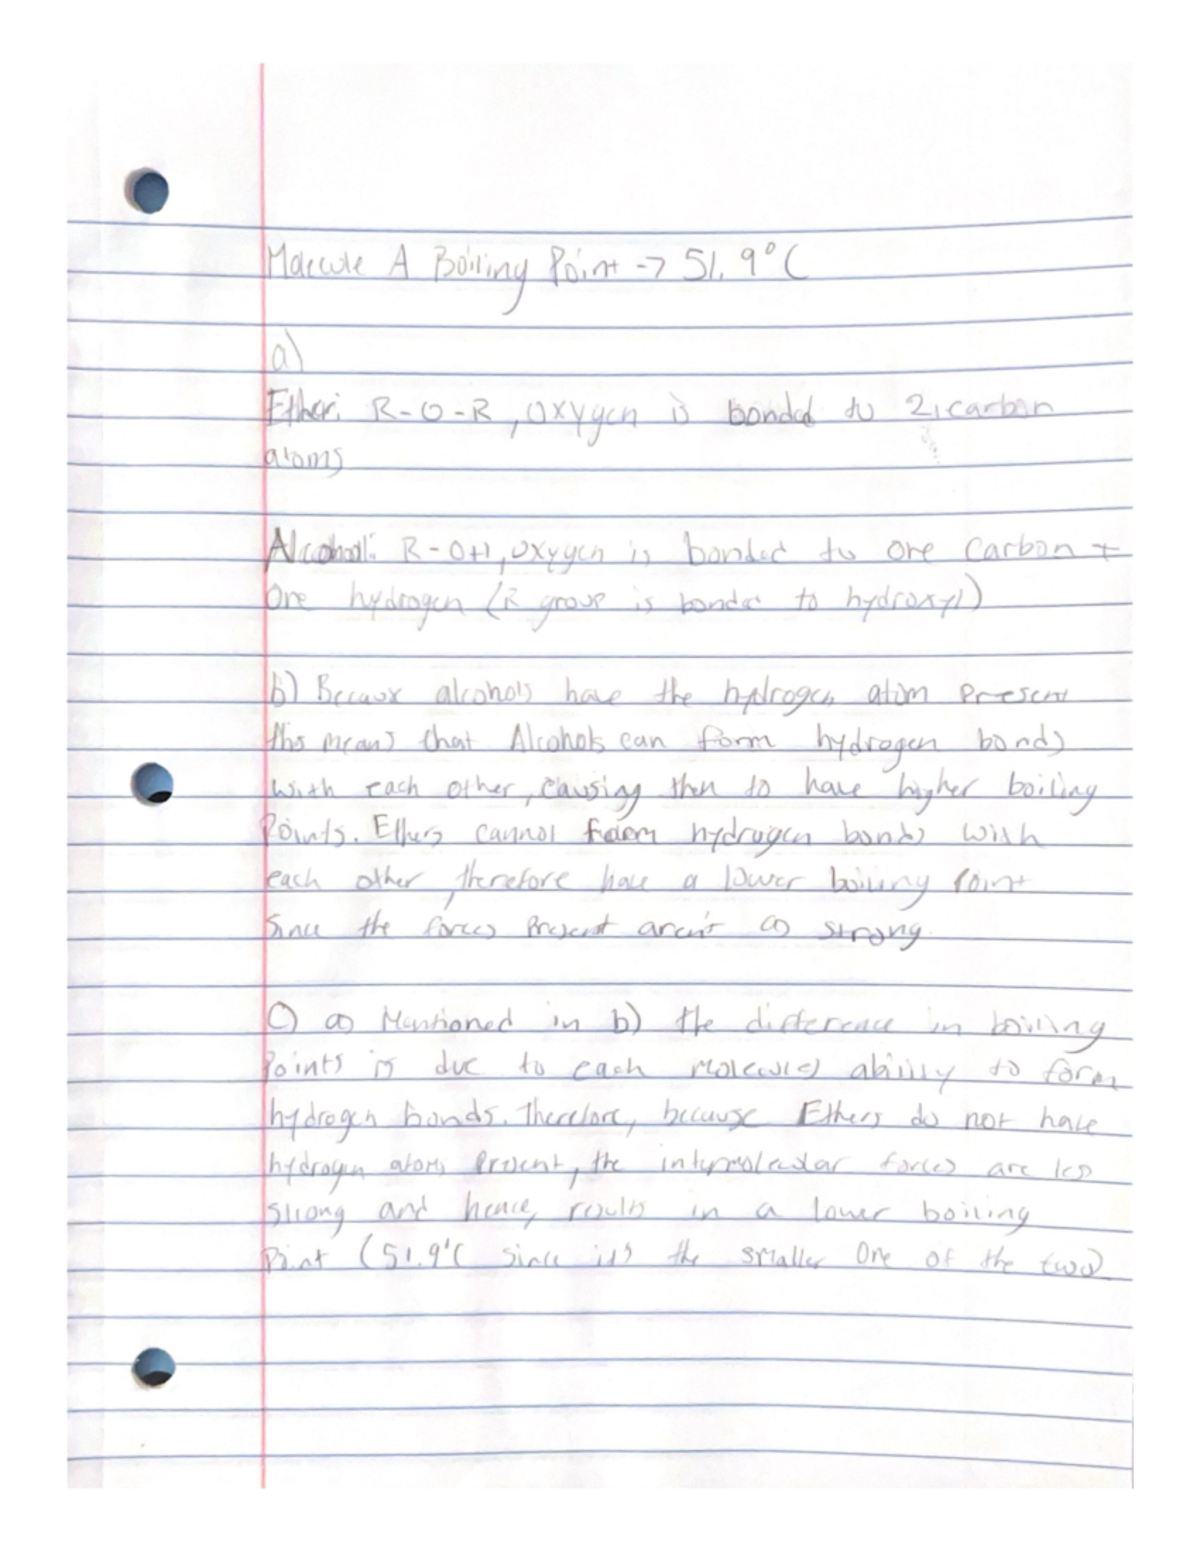 Molecule A Boiling Point -> 51.9°C
a)
Ether: R-O-R, oxygen is bonded to 2 carbon
atoms
Alcohol: R-OH, oxygen is bonded to one carbon +
One hydrogen (R group is bonded to hydroxyl)
b) Because alcohols have the hydrogen atom present
this means that Alcohols can form hydrogen bonds
with each other, causing them to have higher boiling
Points. Ethers cannot form hydrogen bonds with
each other, therefore have a lower boiling point
Since the forces present aren't as strong.
C) as Mentioned in b) the difference in boiling
Points is due to each molecules ability to form
hydrogen bonds. Therefore, because Ethers do not have
hydrogen atoms present, the intermolecular forces are less
strong and hence, results in a lower boiling
Point (51.9°C since it's the smaller One of the two)